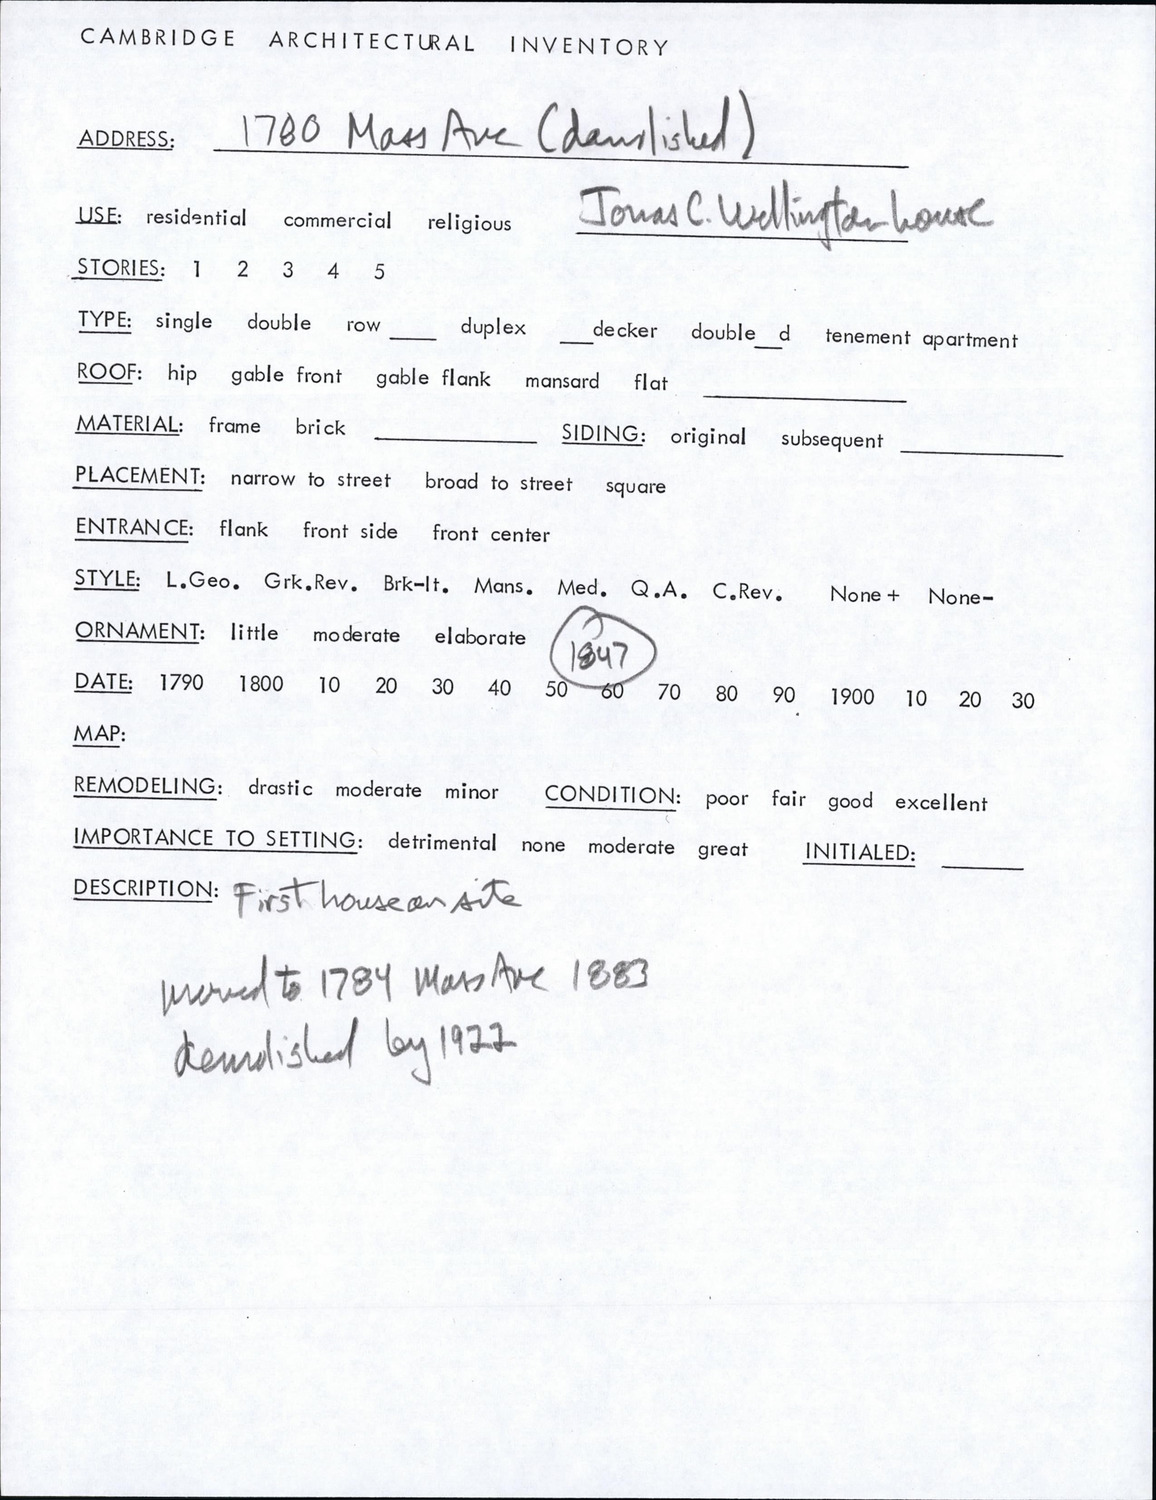 CAMBRIDGE ARCHITECTURAL INVENTORY
ADDRESS: 1780 Mass Ave (demolished)
Jonas C. Wellington house
USE: residential commercial religious
STORIES: 1 2 3 4 5
TYPE: single double row ____ duplex ___decker double__d tenement apartment
ROOF: hip gable front gable flank mansard flat
MATERIAL: frame brick ____ SIDING: original subsequent ____
PLACEMENT: narrow to street broad to street square
ENTRANCE: flank front side front center
STYLE: L.Geo. Grk.Rev. Brk-It. Mans. Med. Q.A. C.Rev. None+ None-
ORNAMENT: little moderate elaborate 1847
DATE: 1790 1800 10 20 30 40 50 60 70 80 90 1900 10 20 30
MAP:
REMODELING: drastic moderate minor CONDITION: poor fair good excellent
IMPORTANCE TO SETTING: detrimental none moderate great INITIALED: ____
DESCRIPTION: First house on site
moved to 1784 Mass Ave 1883
demolished by 1922